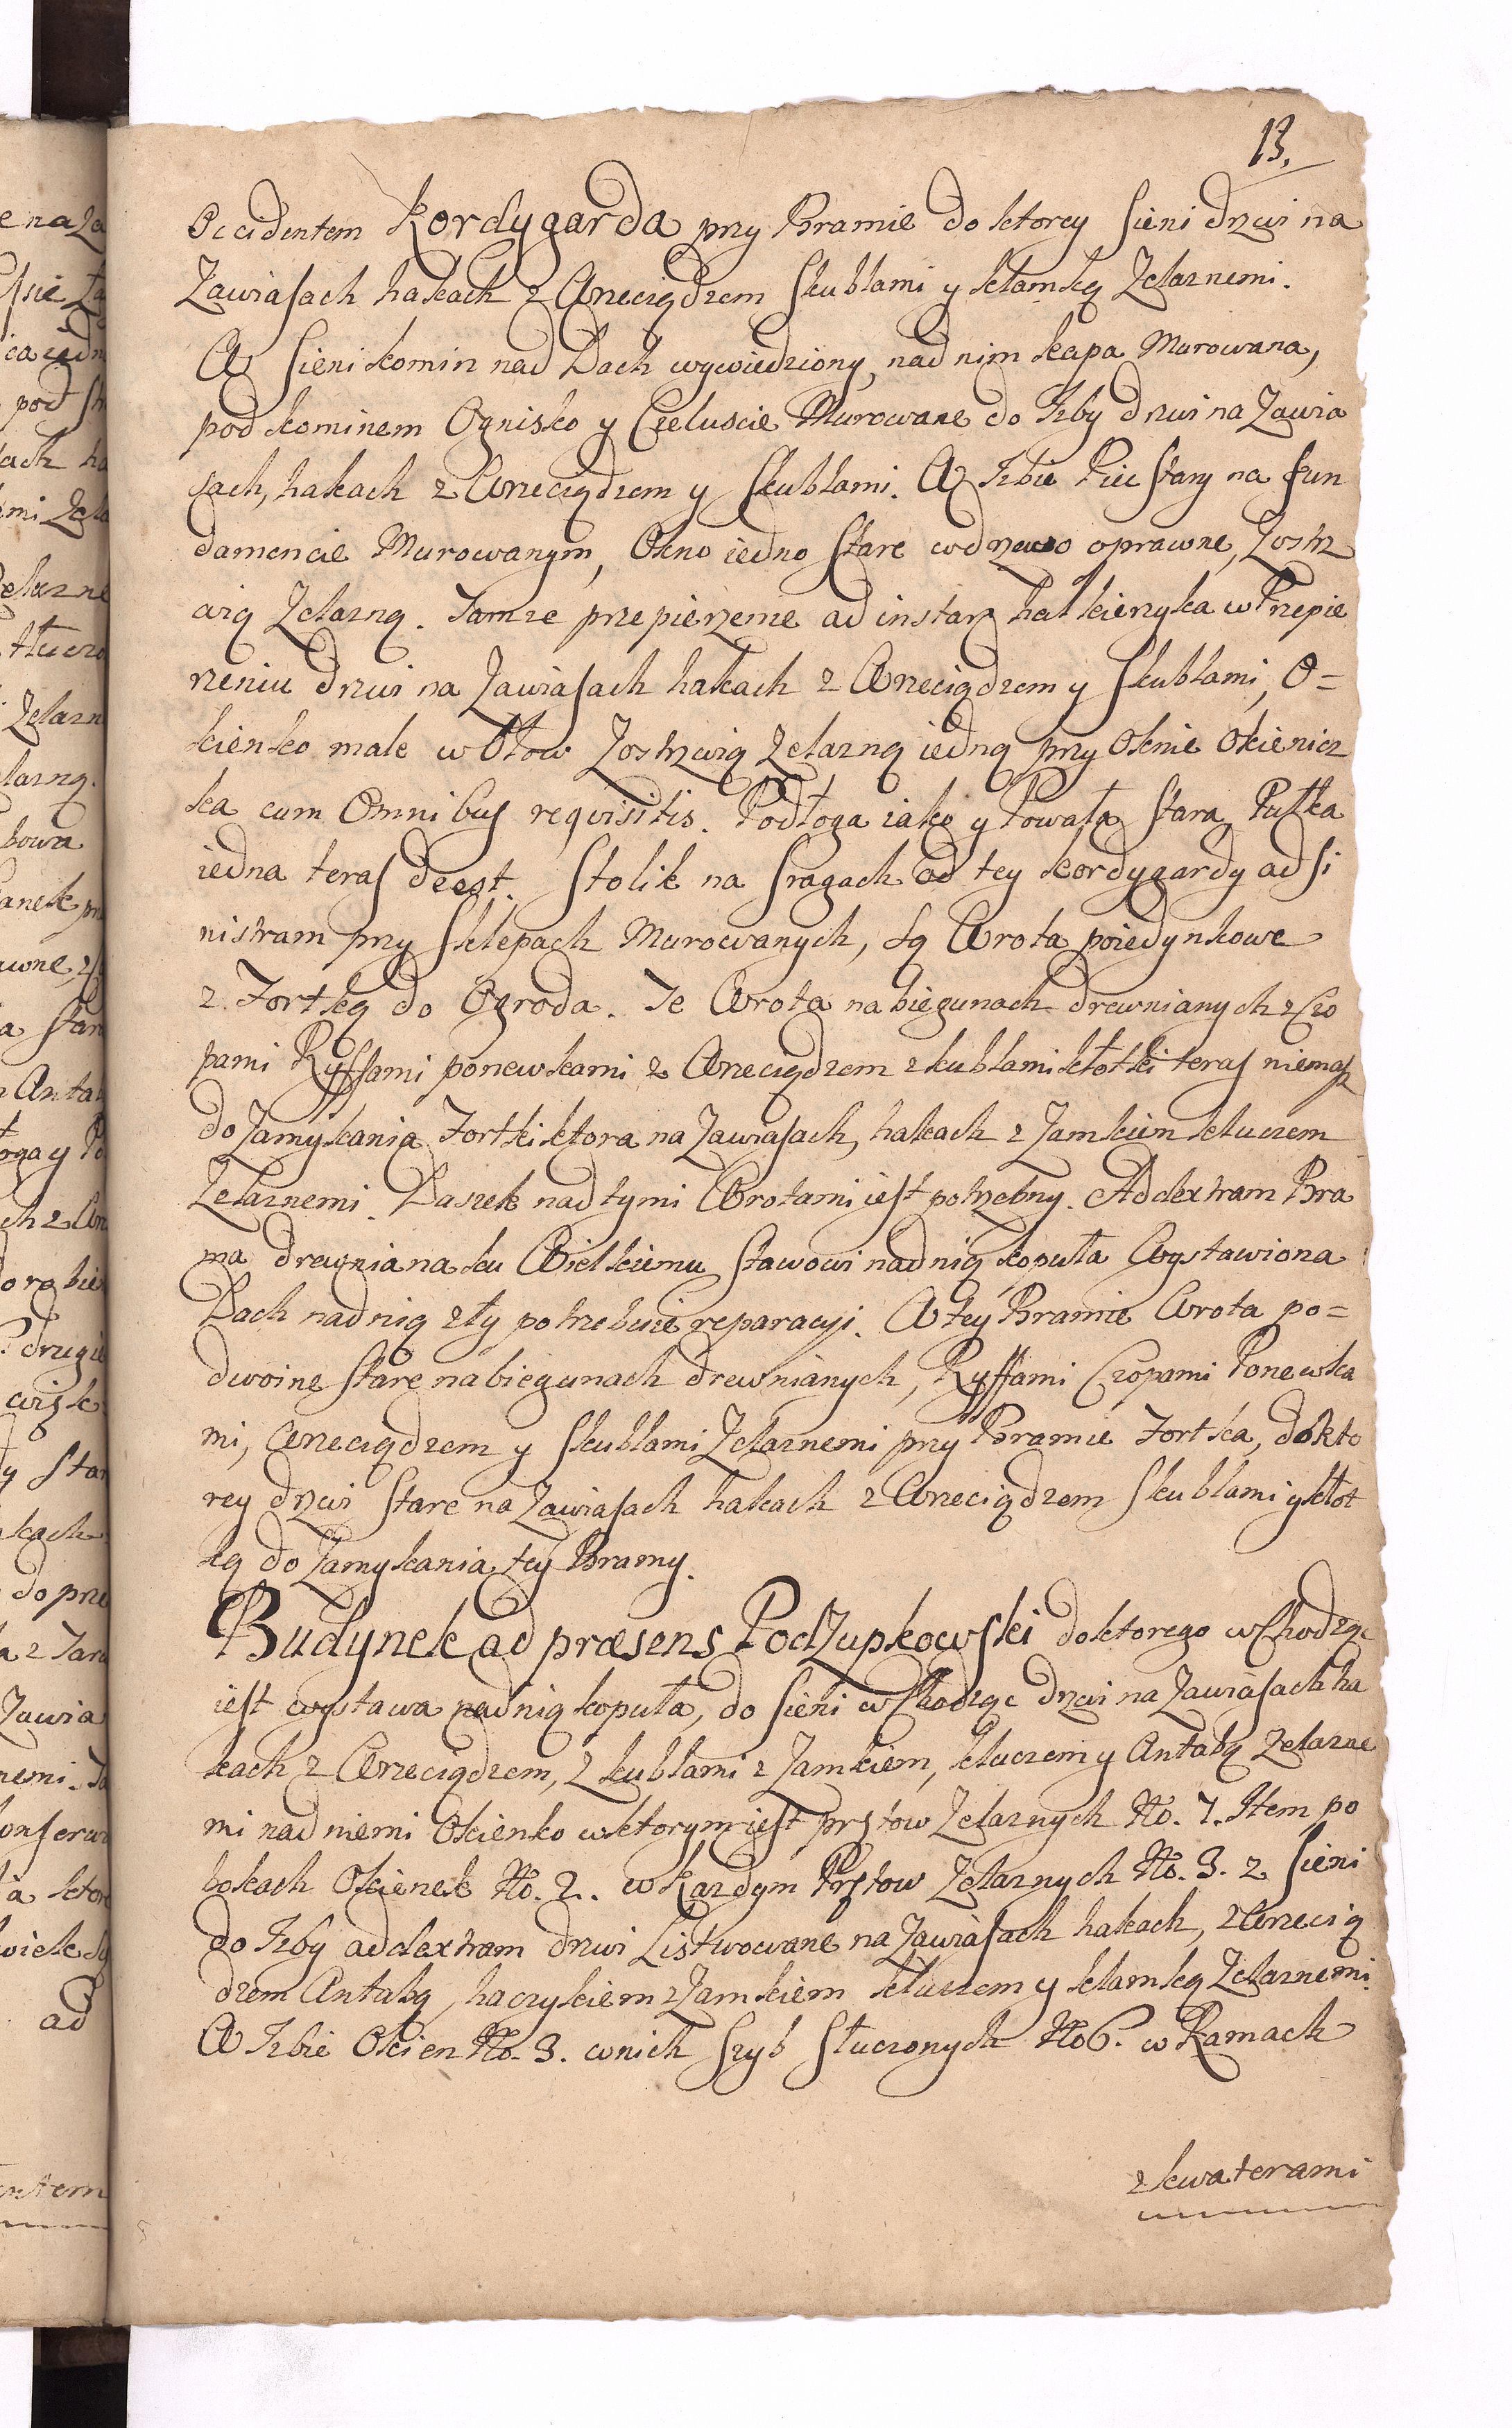 13.
Occidentem Kordygarda przy Bramie do ktorey Sieni drzwi na
Zawiasach hakach z Wrzeciądzem Skublami y klamką Zelaznemi.
W Sieni komin nad Dach wywiedziony, nad nim kapa Murowana,
pod kominem Ognisko y Czeluscie Murowane do Izby drzwi na Zawia
sach, hakach z Wrzeciądzem y Skublami. W Izbie Piec Stary na fun
damencie Murowanym, Okno iedno Stare w drzewo oprawne, Zosztz
wią Zelazną. Tamze przepierzenie ad instar halkierzyka w Przepie
rzeniu drzwi na Zawiasach hakach z Wrzeciądzem y Skublami, O=
kienko małe w Ołow Zosztzwią Zelazną iedną przy Oknie Okienicz
ka cum Omnibus reqvisitis. Podłoga iako y Powała Stara, Pułka
iedna teras deest. Stolik na Sragach od tey kordygardy ad Si
nistram przy Sklepach Murowanych, Są Wrota poiedynkowe
z Fortką do Ogroda. Te Wrota na biegunach drewnianych z Czo
pami Ryffami ponewkami z Wrzeciądzem z kublami kłotki teras niemasz
do Zamykania Fortki ktora na Zawiasach, hakach z Zamkiem kluczem
Zelaznemi. Daszek nad tymi Wrotami iest potrzebny. Ad dextram Bra
ma drewniana ku Wielkiemu Stawowi nad nią kopuła Wystawiona
Dach nad nią zły potrzebuie reparacyi. W tey Bramie Wrota po=
dwoine Stare na biegunach drewnianych, Ryffami Czopami Ponewka
mi, Wrzeciądzem y Skublami Zelaznemi przy Bramie Fortka, do kto
rey drzwi Stare na Zawiasach hakach z Wrzeciądzem Skublami y kłot
ką do Zamykania tey Bramy.
Budynek ad præsens PodZupkowski do ktorego wchodząc
iest wystawa nad nią kopuła, do Sieni wchodząc drzwi na Zawiasach ha
kach z Wrzeciądzem, z kublami z Zamkiem, kluczem y Antabą Zelazne
mi nad niemi Okienko w ktorym iest prętow Zelaznych No. 7. Item po
bokach Okienek No. 2. w Kazdym Prętow Zelaznych No. 3. z Sieni
do Izby ad dextram drzwi Listwowane na Zawiasach hakach, z Wrzecią
dzem Antabą, haczykiem z Zamkiem kluczem y klamką Zelaznemi.
W Izbie Okien No. 3. w nich Szyb Stuczonych No 6. w Ramach
z kwaterami